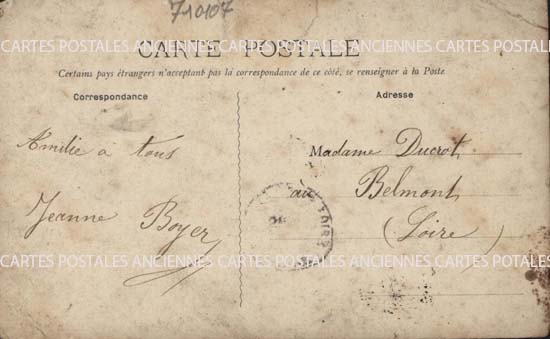 710107
CARTE POSTALE
CARTES POSTALES ANCIENNES CARTES POSTALES ANCIENNES CARTES POSTALES ANCIENNES
Certains pays étrangers n'acceptant pas la correspondance de ce côté, se renseigner à la Poste
Correspondance
Amilie a tous
Jeanne Boyer
Adresse
Madame Ducrot
à Belmont
(Loire)
LOIRE
CARTES POSTALES ANCIENNES CARTES POSTALES ANCIENNES CARTES POSTALES ANCIENNES